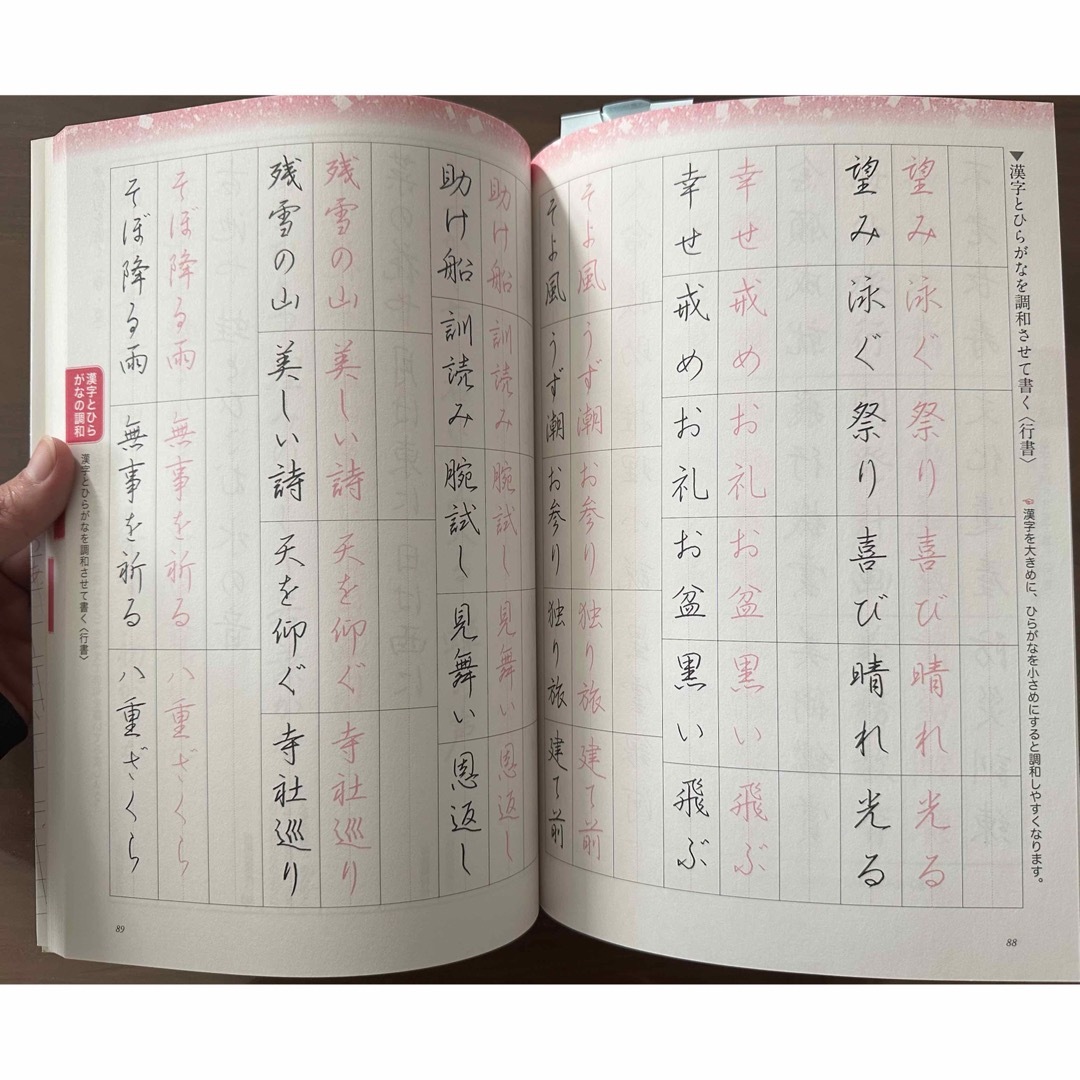 ▼漢字とひらがなを調和させて書く〈行書〉
漢字を大きめに、ひらがなを小さめにすると調和しやすくなります。
望み 泳ぐ 祭り 喜び 晴れ 光る
望み 泳ぐ 祭り 喜び 晴れ 光る
幸せ 戒め お礼 お盆 黒い 飛ぶ
幸せ 戒め お礼 お盆 黒い 飛ぶ
そよ風 うず潮 お参り 独り旅 建て前
そよ風 うず潮 お参り 独り旅 建て前
88
助け船 訓読み 腕試し 見舞い 恩返し
助け船 訓読み 腕試し 見舞い 恩返し
残雪の山 美しい詩 天を仰ぐ 寺社巡り
残雪の山 美しい詩 天を仰ぐ 寺社巡り
そぼ降る雨 無事を祈る 八重ざくら
そぼ降る雨 無事を祈る 八重ざくら
漢字とひら
がなの調和
漢字とひらがなを調和させて書く〈行書〉
89